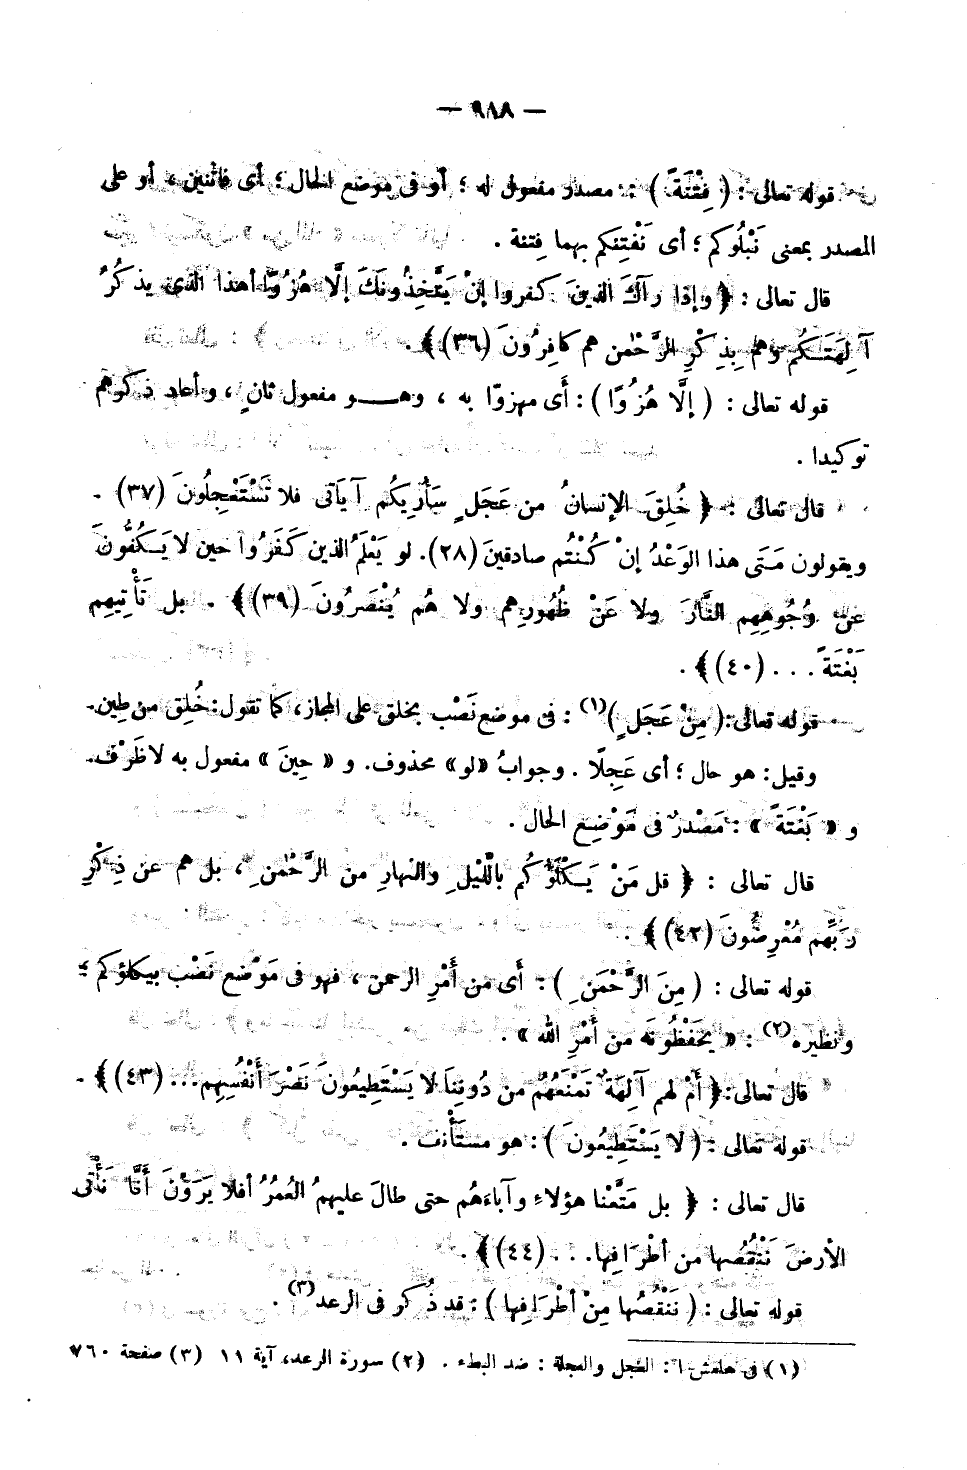 — ٩٨٨ —
قوله تعالى : ( فِتْنَةً ) : مصدر مفعول له ؛ أو فى موضع الحال ؛ أى فاتنين ، أو على
المصدر بمعنى نَبْلُوكم ؛ أى نَفْتِنكم بهما فِتنة .
قال تعالى : ﴿ وإذا رآكَ الذين كفروا إنْ يَتَّخِذُونَكَ إلَّا هُزُوًا أهذا الذى يذكُرُ
آلِهَتَكُم وهم بِذِكْرِ الرَّحْمٰن هم كافِرُونَ (٣٦)﴾ .
قوله تعالى : ( إلَّا هُزُوًا ) : أى مهزوّا به ، وهو مفعول ثانٍ ، وأعاد ذكرهم
توكيدا .
قال تعالى : ﴿ خُلِقَ الإنسانُ من عَجَلٍ سَأُرِيكُم آياتى فلا تَسْتَعْجِلُونَ (٣٧) .
ويقولون مَتَى هذا الوَعْدُ إنْ كُنْتُم صادقينَ (٢٨). لو يَعْلَمُ الذين كَفَرُوا حين لا يَكُفُّونَ
عن وُجُوهِهِم النَّارَ ولا عَنْ ظُهُورِهم ولا هُم يُنْصَرُونَ (٣٩)﴾ . بل تَأْتِيهِم
بَغْتَةً . . . (٤٠)﴾ .
قوله تعالى: ( مِنْ عَجَلٍ )(١) : فى موضع نَصْب بخلق على المجاز، كما تقول: خُلِق من طِين.
وقيل: هو حال ؛ أى عَجِلًا . وجوابُ «لو» محذوف. و « حِينَ » مفعول به لا ظَرْف.
و « بَغْتَةً » : مَصْدرٌ فى مَوْضِعِ الحال .
قال تعالى : ﴿ قل مَنْ يَكْلَؤُكُم بالَّليْلِ والنهارِ من الرَّحْمٰنِ ، بل هم عن ذِكْرِ
رَبِّهم مُعْرِضُونَ (٤٢)﴾ .
قوله تعالى : ( مِنَ الرَّحْمَنِ ) : أى من أَمْرِ الرحمن ، فهو فى مَوْضع نَصْب بيكلؤكم ؛
ونظيره(٢) : « يحَفْظُونَه من أَمْرِ الله » .
قال تعالى: ﴿ أَمْ لهم آلِهَةٌ تَمْنَعُهُمْ من دُونِنَا لا يَسْتَطِيعُونَ نَصْرَ أَنْفُسِهِم... (٤٣)﴾ .
قوله تعالى : ( لا يَسْتَطِيعُونَ ) : هو مستَأْنف .
قال تعالى : ﴿ بل مَتَّعْنا هؤلاءِ وآباءَهُم حتى طالَ عليهمُ العُمُرُ أفلا يَرَوْنَ أَنَّا نَأْتى
الأرضَ نَنْقُصُها من أطْرَافِها. . . (٤٤)﴾ .
قوله تعالى : ( نَنْقُصُها مِنْ أطْرَافِها ) : قد ذُكر فى الرعد(٣) .
(١) فى هامش ا : العجل والعجلة : ضد البطء . (٢) سورة الرعد، آية ١١ (٣) صفحة ٧٦٠